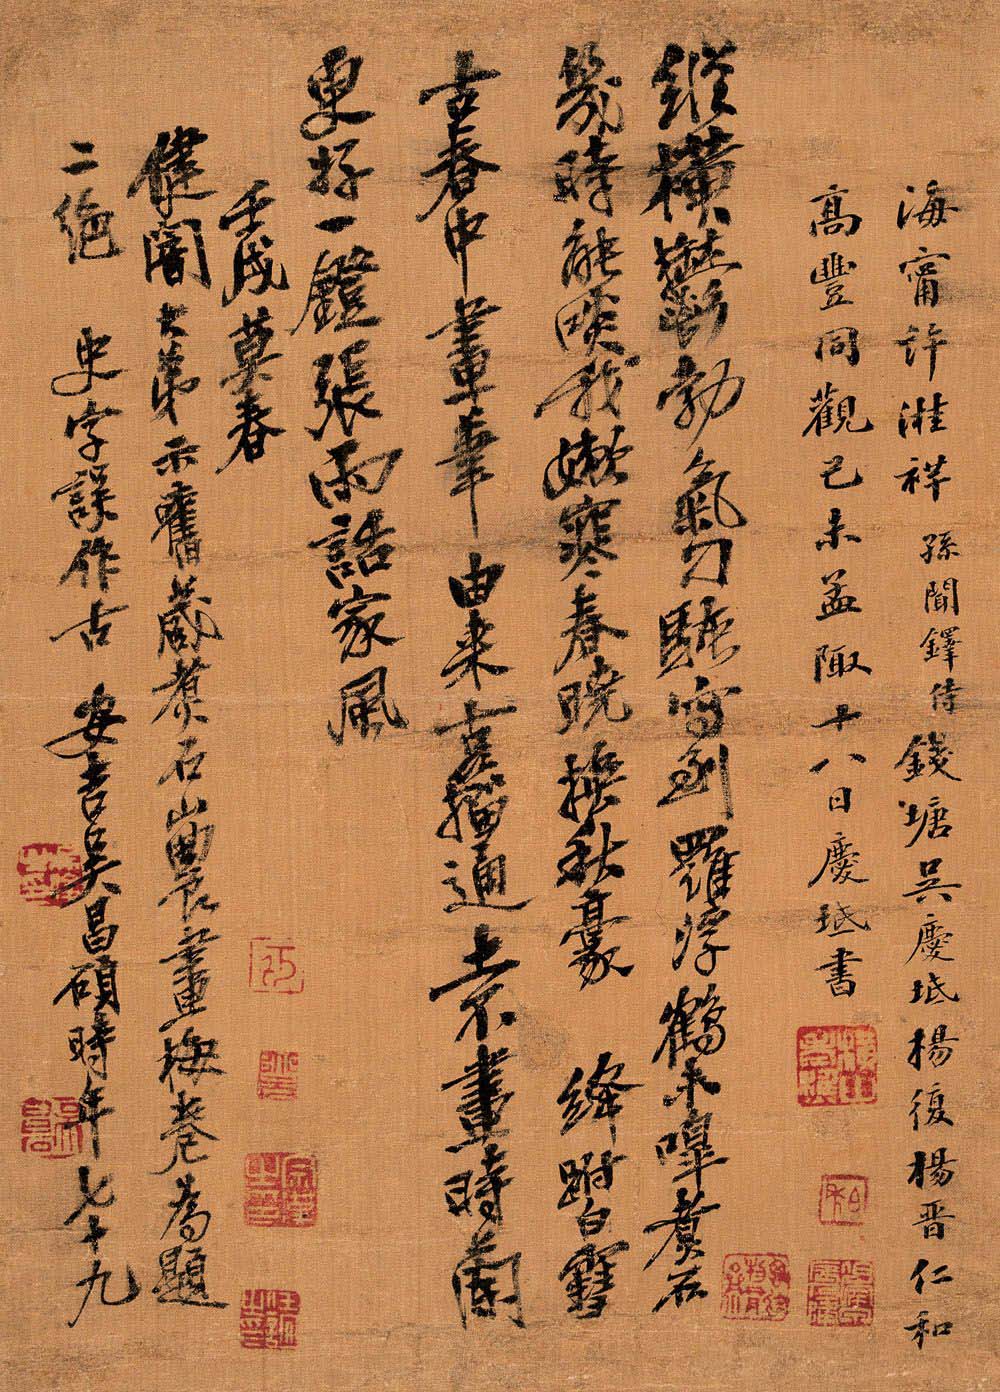 海甯許溎祥 孫聞鐸侍 錢塘吳慶坻楊復楊晋仁和
高豐同觀己未孟陬十八日慶坻書
縱橫鬱勃氣刁騷寫到羅浮鶴未嗥煮石
幾時能啖我嫩寒春曉秋豪 絳跗白雪
古春中畫筆由來古籀通土不畫時蘭
更好一鐙張雨話家風
壬戌莫春
健闇大弟示舊藏煮石山農畫梅卷為題
二絕 史字誤作古 安吉吳昌碩時年七十九